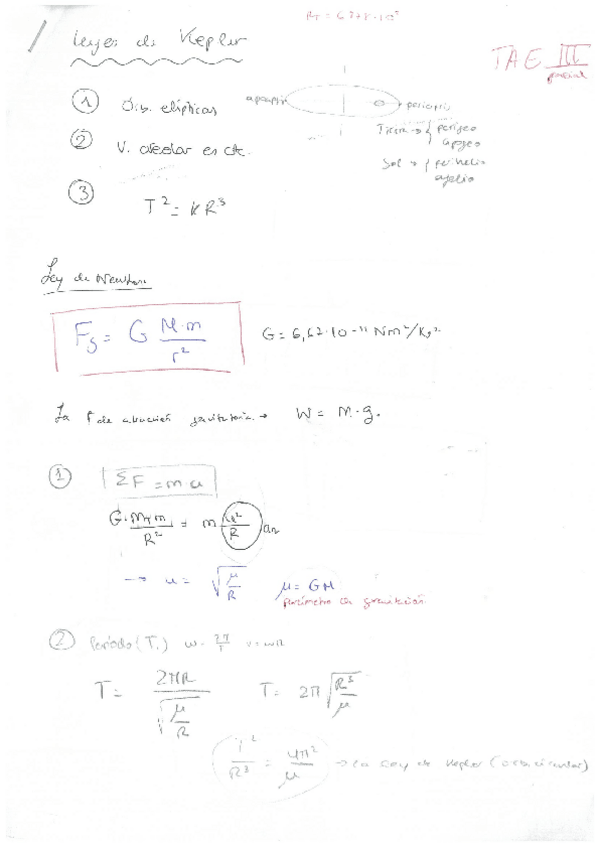 RT = 6378·10³
Leyes de Kepler
TAE III
parcial
① Órb. elípticas
apoapsis
periapsis
Tierra → { perigeo
apogeo
② V. areolar es cte.
Sol → { perihelio
afelio
③ T² = K R³
Ley de Newton
Fg = G M·m / r²
G = 6,67·10⁻¹¹ Nm²/Kg²
La F de atracción gravitatoria → W = m·g.
① ΣF = m a
G·MT m / R² = m / R an
→ u = √(μ/R) μ = GM
parámetro de gravitación
② Período (T.) w = 2π/T v = wR
T = 2πR / √(μ/R) T = 2π √(R³/μ)
T²/R³ = 4π²/μ → la Ley de Kepler (órb. circular)